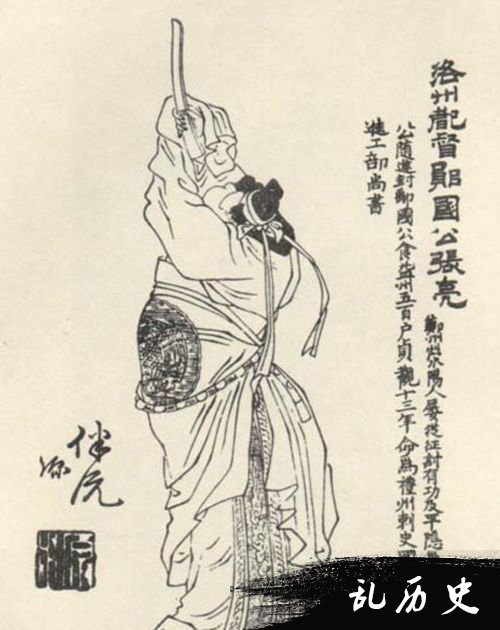 洛州都督鄖國公張亮
鄭州滎陽人屡從征討有功及平隐
公随進封鄖國公食益州五百户貞觀十三年命為澧州刺史
進工部尚書
伴阮
源
乱历史